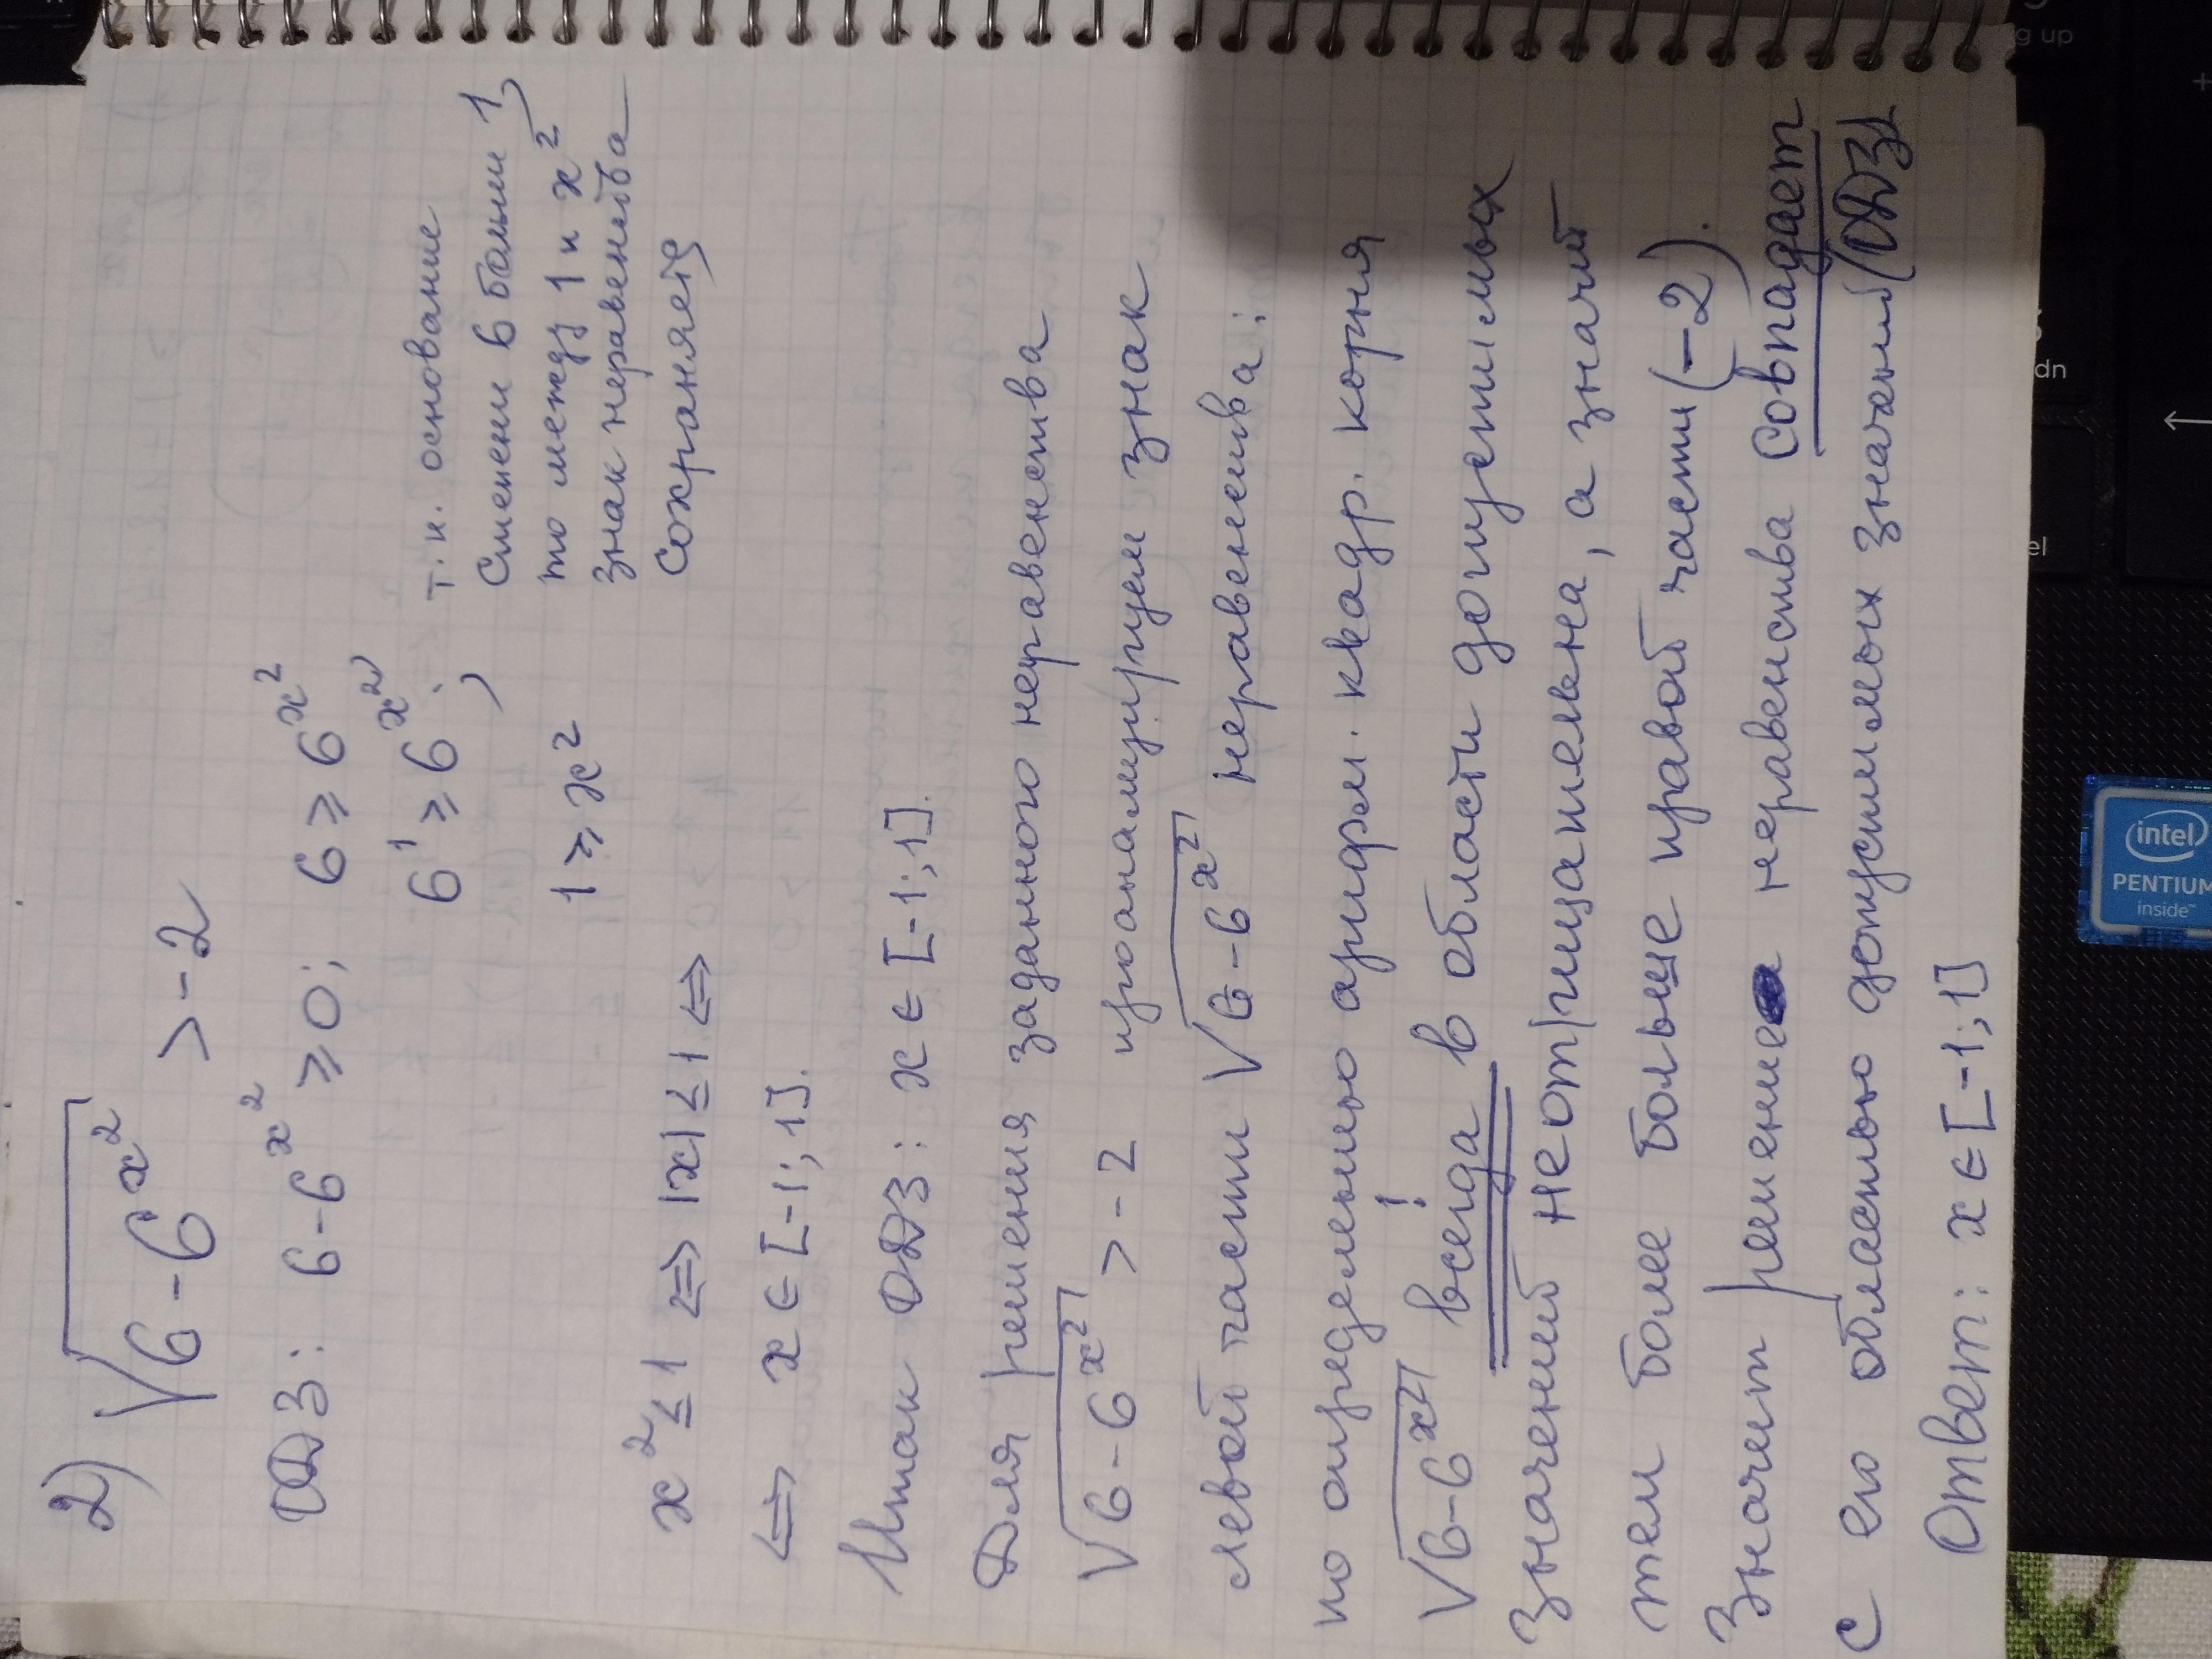 2) √(6-6^(x^2)) > -2
ОДЗ: 6-6^(x^2) ⩾ 0; 6 ⩾ 6^(x^2)
6^1 ⩾ 6^(x^2);
1 ⩾ x^2
т. к. основание
степени 6 больше 1,
то между 1 и x^2
знак неравенства
сохраняется
x^2 ≤ 1 ⇔ |x| ≤ 1 ⇔
⇔ x ∈ [-1; 1].
Итак ОДЗ: x ∈ [-1; 1].
Для решения заданного неравенства
√(6-6^(x^2)) > -2 проанализируем знак
левой части √(6-6^(x^2)) неравенства:
по определению арифм. квадр. корня
√(6-6^(x^2)) всегда! в области допустимых
значений неотрицательна, а значит
тем более больше правой части (-2).
Значит решение неравенства совпадает
с его областью допустимых значений (ОДЗ)
Ответ: x ∈ [-1; 1]
intel
PENTIUM
inside™
g up
dn
el